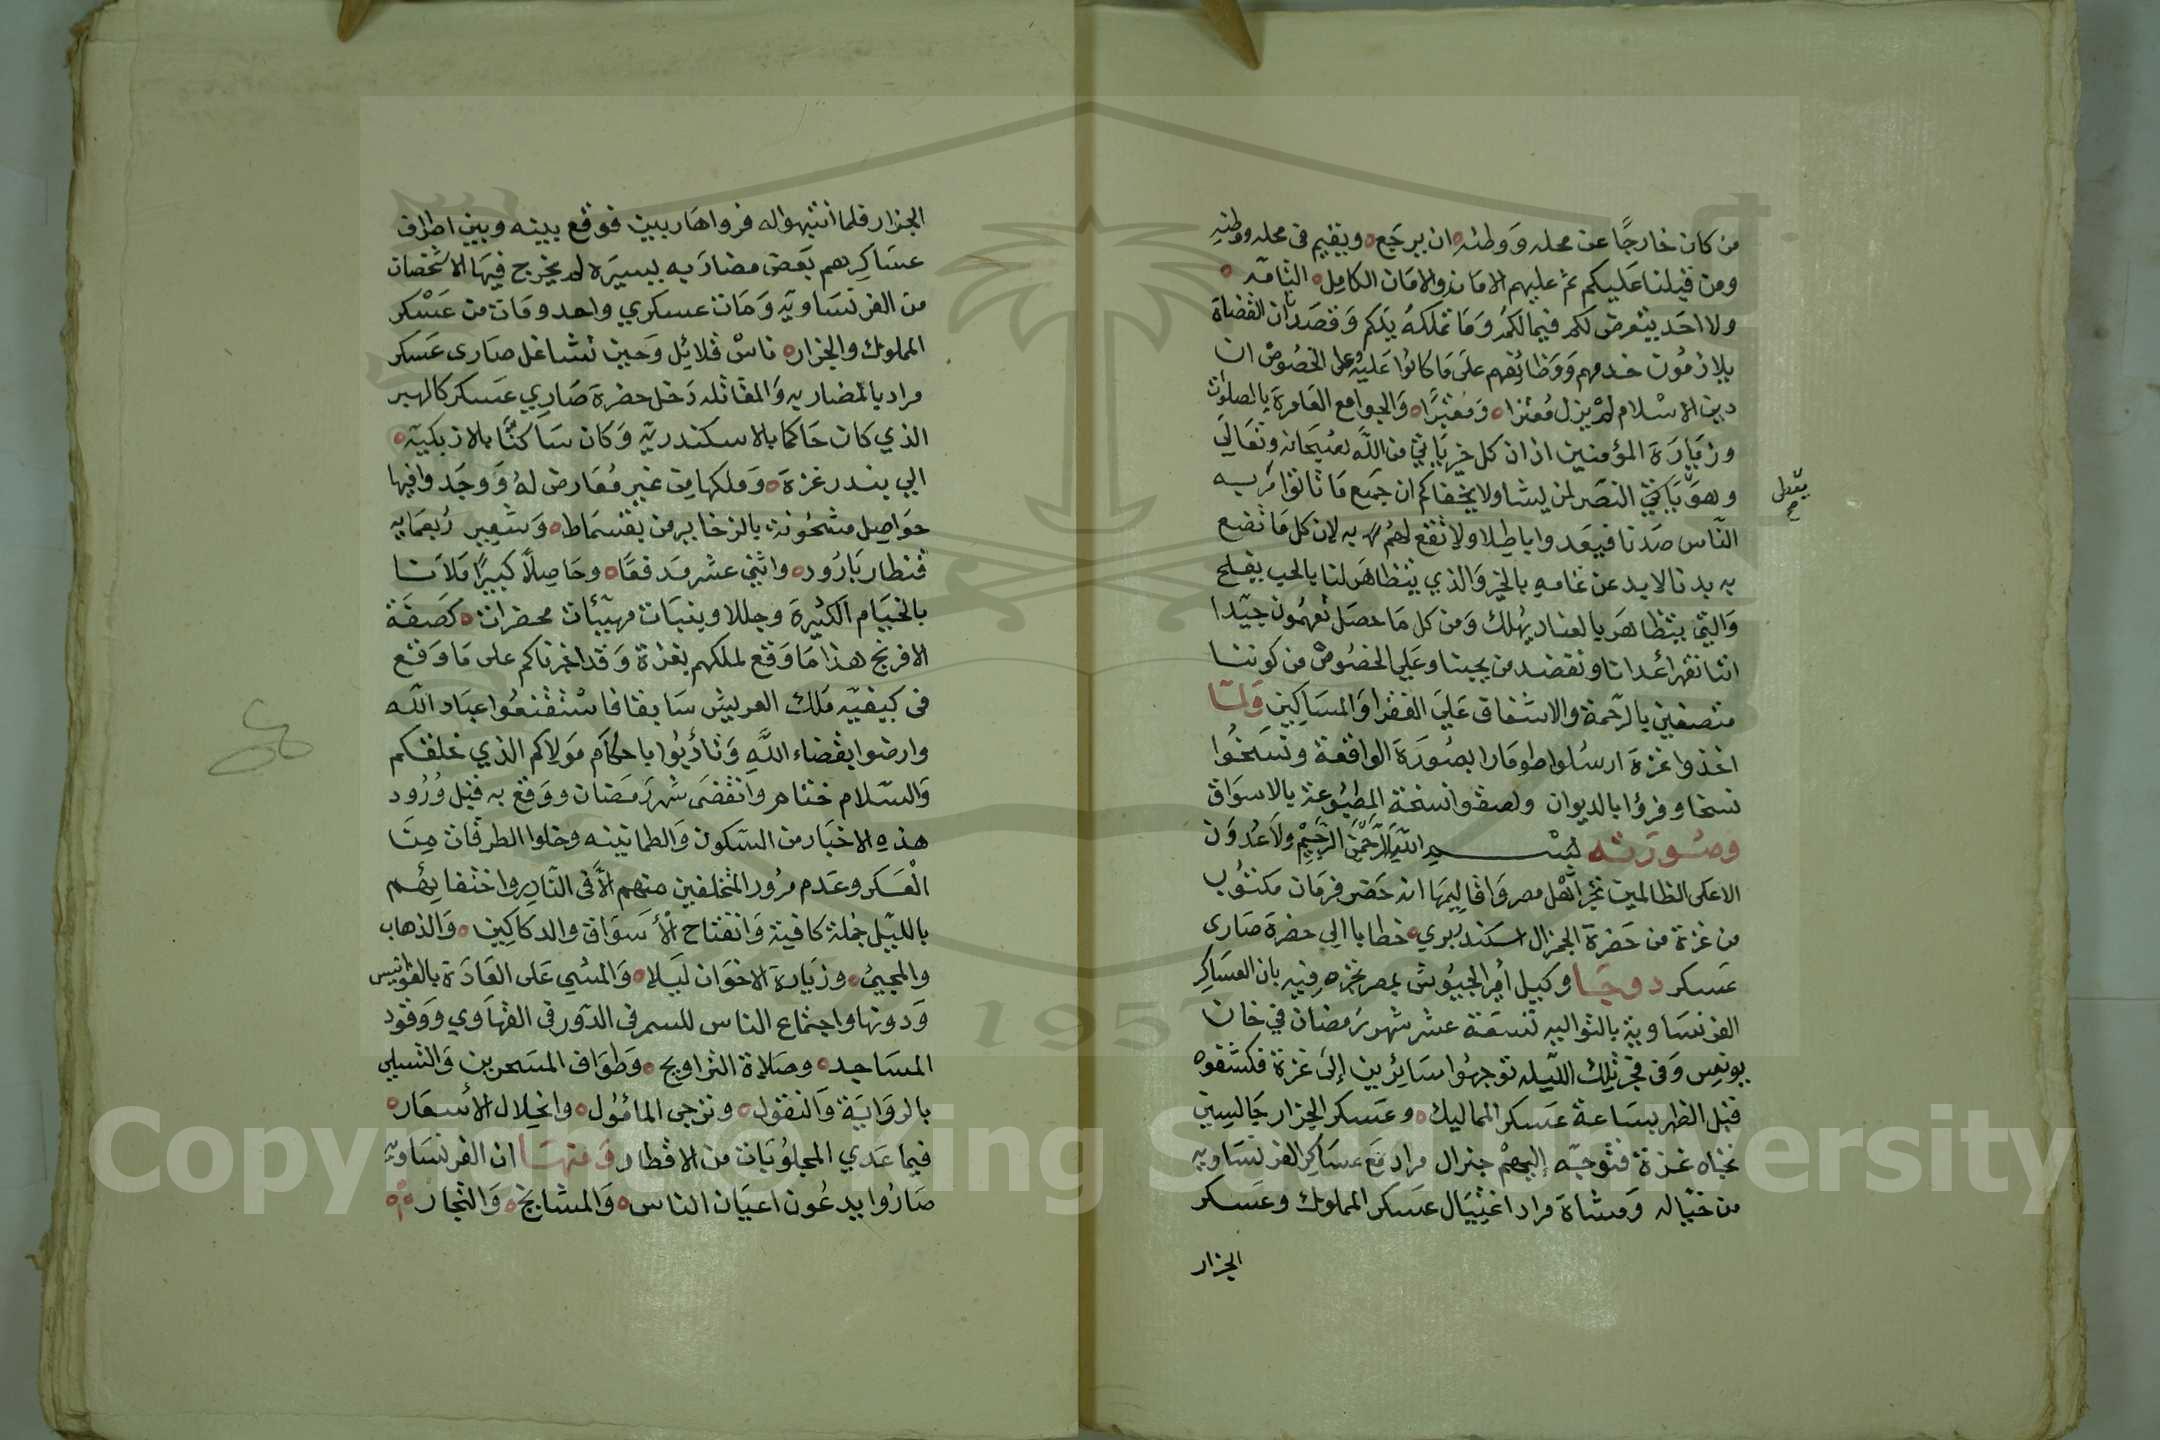 من كان خارجًا عن محله ووطنه ان يرجع ويقيم فى محله ووطنه
ومن قبلنا عليكم ثم عليهم الامان والامان الكامل التامة
ولا احد يتعرض لكم فيما لكم وما تملكه يدكم وقصدنا ان القضاة
يلازمون خدمهم ووظائفهم على ما كانوا عليه على الخصوص ان
دين الاسلام لم يزل معتزا ومعتبرًا والجوامع العامرة بالصلوات
وزيارة المؤمنين اذ ان كل خير ياتي من الله سبحانه وتعالي
وهو ياتي النصر لمن يشا ولا يخفاكم ان جميع ما
يعطى صح
الناس ضدنا فيغدوا باطلا ولا نفع لهم به لان كل ما نضع
به يدنا لابد عن تمامه بالخير والذي يتظاهر لنا بالحب يفلح
والتي يتظاهر بالعناد يهلك ومن كل ما حصل تفهمون جيدا
اننا نقهر أعدانا ونعضد من يحبنا وعلي الخصوص من كوننا
متصفين بالرحمة والاشفاق علي الفقرا والمساكين ولما
اخذوا غزة ارسلوا طومارا بصورة الواقعة ونسخوا
نسخا وقرؤا بالديوان ولصقوا نسخته المطبوعة بالاسواق
وصورته بسم الله الرحمن الرحيم ولا عدوان
الا على الظالمين نخبر أهل مصر واقاليمها انه حضر فرمان مكتوب
من غزة من حضرة الجنرال اسكندبري خطابا الي حضرة صارى
عسكر دوجا وكيل أمير الجيوش بمصر نخبره فيه بان العساكر
الفرنساوية باتوا ليه تسعة عشر شهر رمضان في خان
يونس وفى فجر تلك الليله توجهوا سائرين إلى غزة فكشفوه
قبل الظهر بساعة عسكر المماليك وعسكر الجزار جالسين
تجاه غزة فتوجه إليهم جنرال مراد مع عساكر الفرنساويه
من خياله ومشاة مراد اغتيال عسكر المملوك وعسكر
الجزار
الجزار فلما انتبهوا له فروا هاربين فوقع بينه وبين اطراف
عساكرهم بعض مضاربه يسيره لم يخرج فيها الا شخصان
من الفرنساويه ومات عسكري واحد ومات من عسكر
المملوك والجزار ناس قلائل وحين تشاغل صارى عسكر
مراد بالمضاربه والمقاتله دخل حضرة صاري عسكر كالهبر
الذي كان حاكما بالاسكندرية وكان ساكنًا بالازبكية
الي بندر غزة وملكها من غير معارض له ووجدوا فيها
حواصل مشحونة بالزخاير من بقسماط وشعير ربعمايه
قنطار بارود واثني عشر مدفعًا وحاصلًا كبيرًا ملآنا
بالخيام الكثيرة وجللا وينبات مهيئات محضرات كصفة
الافرنج هذا ما وقع لملكهم بغزة وقد اخبرناكم على ما وقع
فى كيفية ملك العريش سابقا فاستقنعوا عباد الله
وارضوا بقضاء الله وتأدبوا باحكام مولاكم الذي خلقكم
والسلام ختام وانقضى شهر رمضان ووقع به قبل ورود
هذه الاخبار من السكون والطمانينه وخلوا الطرقات من
العسكر وعدم مرور المتخلفين منهم الا فى النادر واختفائهم
بالليل جملة كافية وانفتاح الأسواق والدكاكين والذهاب
والمجيئ وزيارة الاخوان ليلا والمشي على العادة بالفوانيس
ودونها واجتماع الناس للسمر فى الدور فى القهاوي ووقود
المساجد وصلاة التراويح وطواف المسحرين والتسلي
بالرواية والنقول وترجى المامؤل وانحلال الأسعار
فيما عدي المجلوبات من الاقطار ومنها ان الفرنساوية
صاروا يدعون اعيان الناس والمشايخ والتجار